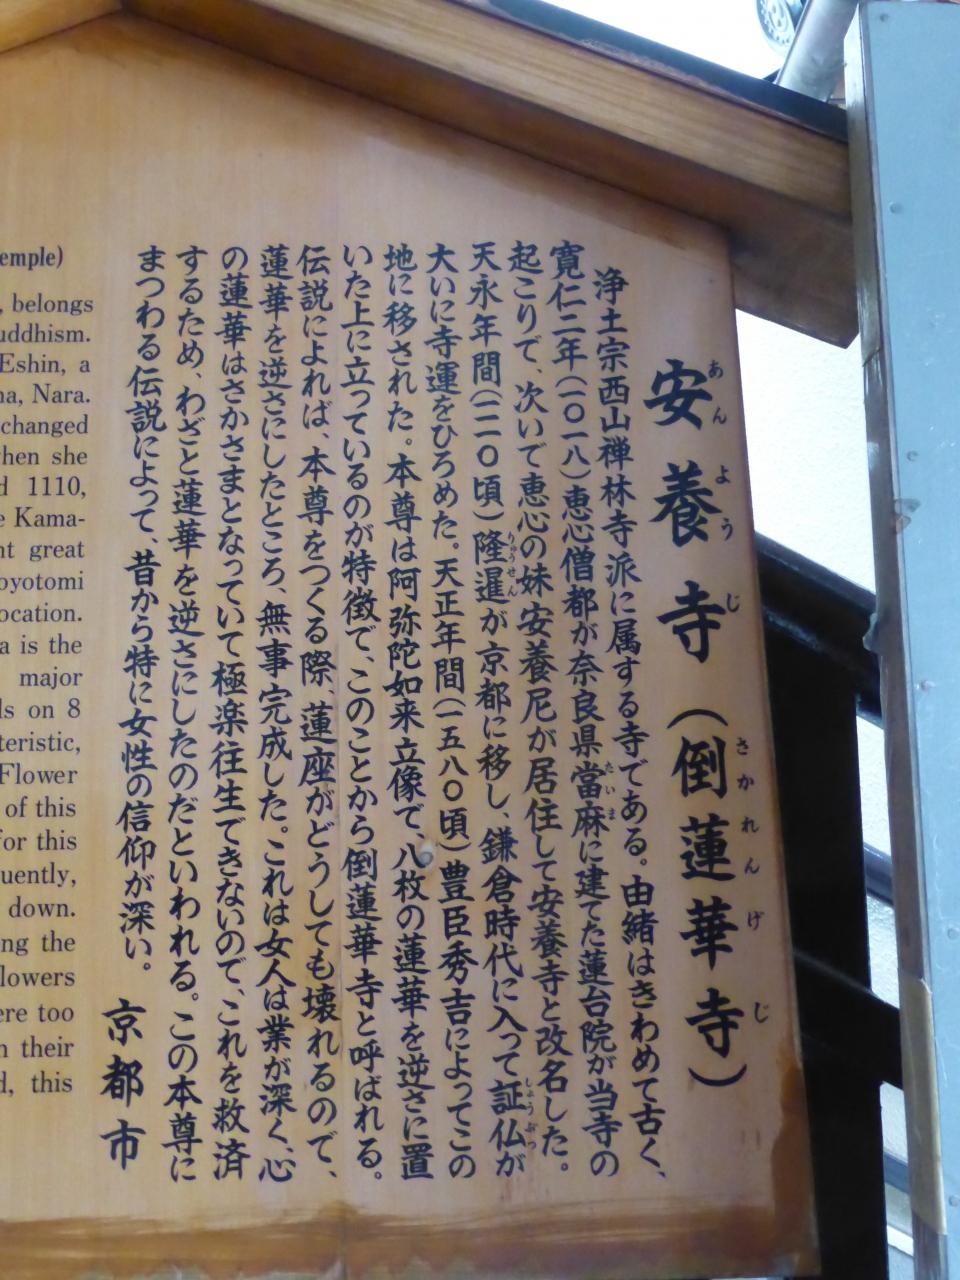 安養寺（倒蓮華寺）
あんようじ
さかれんげじ
浄土宗西山禅林寺派に属する寺である。由緒はきわめて古く、
寛仁二年（一〇一八）恵心僧都が奈良県當麻に建てた蓮台院が当寺の
たいま
起こりで、次いで恵心の妹安養尼が居住して安養寺と改名した。
天永年間（一一一〇頃）隆暹が京都に移し、鎌倉時代に入って証仏が
りゅうせん
しょうぶつ
大いに寺運をひろめた。天正年間（一五八〇頃）豊臣秀吉によってこの
地に移された。本尊は阿弥陀如来立像で、八枚の蓮華を逆さに置
いた上に立っているのが特徴で、このことから倒蓮華寺と呼ばれる。
伝説によれば、本尊をつくる際、蓮座がどうしても壊れるので、
蓮華を逆さにしたところ、無事完成した。これは女人は業が深く、心
の蓮華はさかさまとなっていて極楽往生できないので、これを救済
するため、わざと蓮華を逆さにしたのだといわれる。この本尊に
まつわる伝説によって、昔から特に女性の信仰が深い。
京都市
emple)
, belongs
uddhism.
Eshin, a
na, Nara.
changed
when she
d 1110,
e Kama-
nt great
oyotomi
ocation.
a is the
major
ds on 8
teristic,
Flower
of this
for this
uently,
down.
ng the
lowers
ere too
n their
d, this